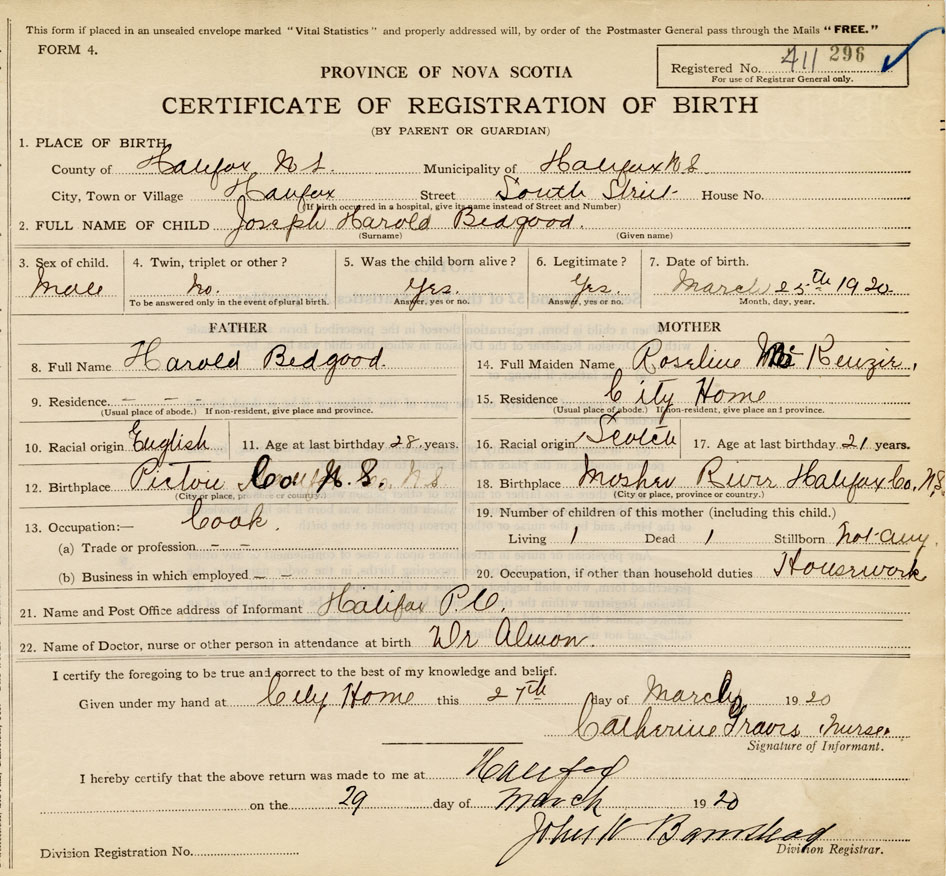 This form if placed in an unsealed envelope marked "Vital Statistics" and properly addressed will, by order of the Postmaster General pass through the Mails "FREE."
FORM 4.
Registered No. 411 296
For use of Registrar General only.
PROVINCE OF NOVA SCOTIA
CERTIFICATE OF REGISTRATION OF BIRTH
(BY PARENT OR GUARDIAN)
1. PLACE OF BIRTH
County of Halifax N S. Municipality of Halifax N S
City, Town or Village Halifax Street South Street House No.
(If birth occurred in a hospital, give its name instead of Street and Number)
2. FULL NAME OF CHILD Joseph Harold Bedgood.
(Surname) (Given name)
3. Sex of child. 4. Twin, triplet or other? 5. Was the child born alive? 6. Legitimate? 7. Date of birth.
Male No. Yes. Yes. March 25th 1920
To be answered only in the event of plural birth. Answer, yes or no. Answer, yes or no. Month, day, year.
FATHER MOTHER
8. Full Name Harold Bedgood. 14. Full Maiden Name Roseline Mc Kenzie,
9. Residence. – – – 15. Residence City Home
(Usual place of abode.) If non-resident, give place and province. (Usual place of abode.) If non-resident, give place and province.
10. Racial origin English 11. Age at last birthday 28 years. 16. Racial origin Scotch 17. Age at last birthday 21 years.
12. Birthplace Pictou Co N. S. N S 18. Birthplace Mosher River Halifax Co, N S
(City or place, province or country.) (City or place, province or country.)
13. Occupation:— Cook. 19. Number of children of this mother (including this child.)
(a) Trade or profession – – Living 1 Dead 1 Stillborn not any
(b) Business in which employed – – 20. Occupation, if other than household duties Housework
21. Name and Post Office address of Informant Halifax P.O.
22. Name of Doctor, nurse or other person in attendance at birth Dr Almon.
I certify the foregoing to be true and correct to the best of my knowledge and belief.
Given under my hand at City Home this 27th day of March 1920
Catherine Travis Nurse.
Signature of Informant.
I hereby certify that the above return was made to me at Halifax
on the 29 day of March 1920
John H Barnstead
Division Registration No. Division Registrar.